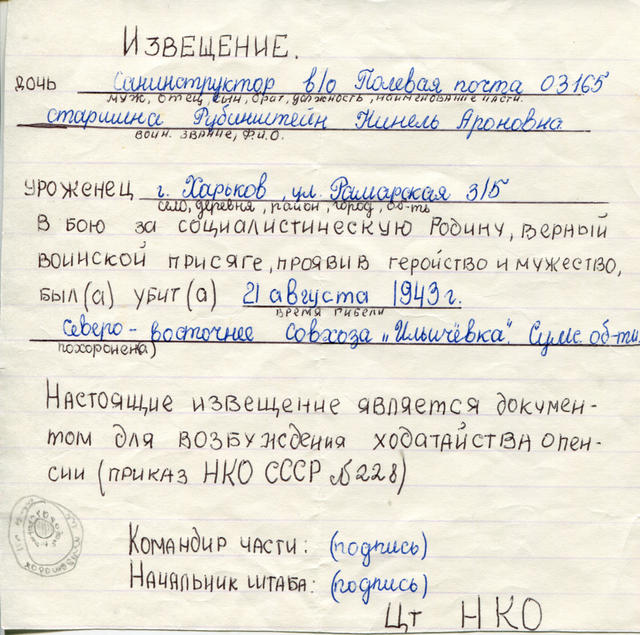 Извещение.
дочь Санинструктор в/о Полевая почта 03165
муж, отец, сын, брат, должность, наименование части.
старшина Рубинштейн Нинель Ароновна
воин. звание, Ф.И.О.
уроженец г. Харьков, ул. Рамарская 3/5
село, деревня, район, город, об-ть
В бою за социалистическую Родину, верный
воинской присяге, проявив геройство и мужество,
был(а) убит(а) 21 августа 1943 г.
время гибели
Северо-восточнее совхоза „Ильичёвка". Сумс. об-ти.
похоронена)
Настоящие извещение является докумен-
том для возбуждения ходатайства опен-
сии (приказ НКО СССР №228)
Командир части: (подпись)
Начальник штаба: (подпись)
Цт НКО